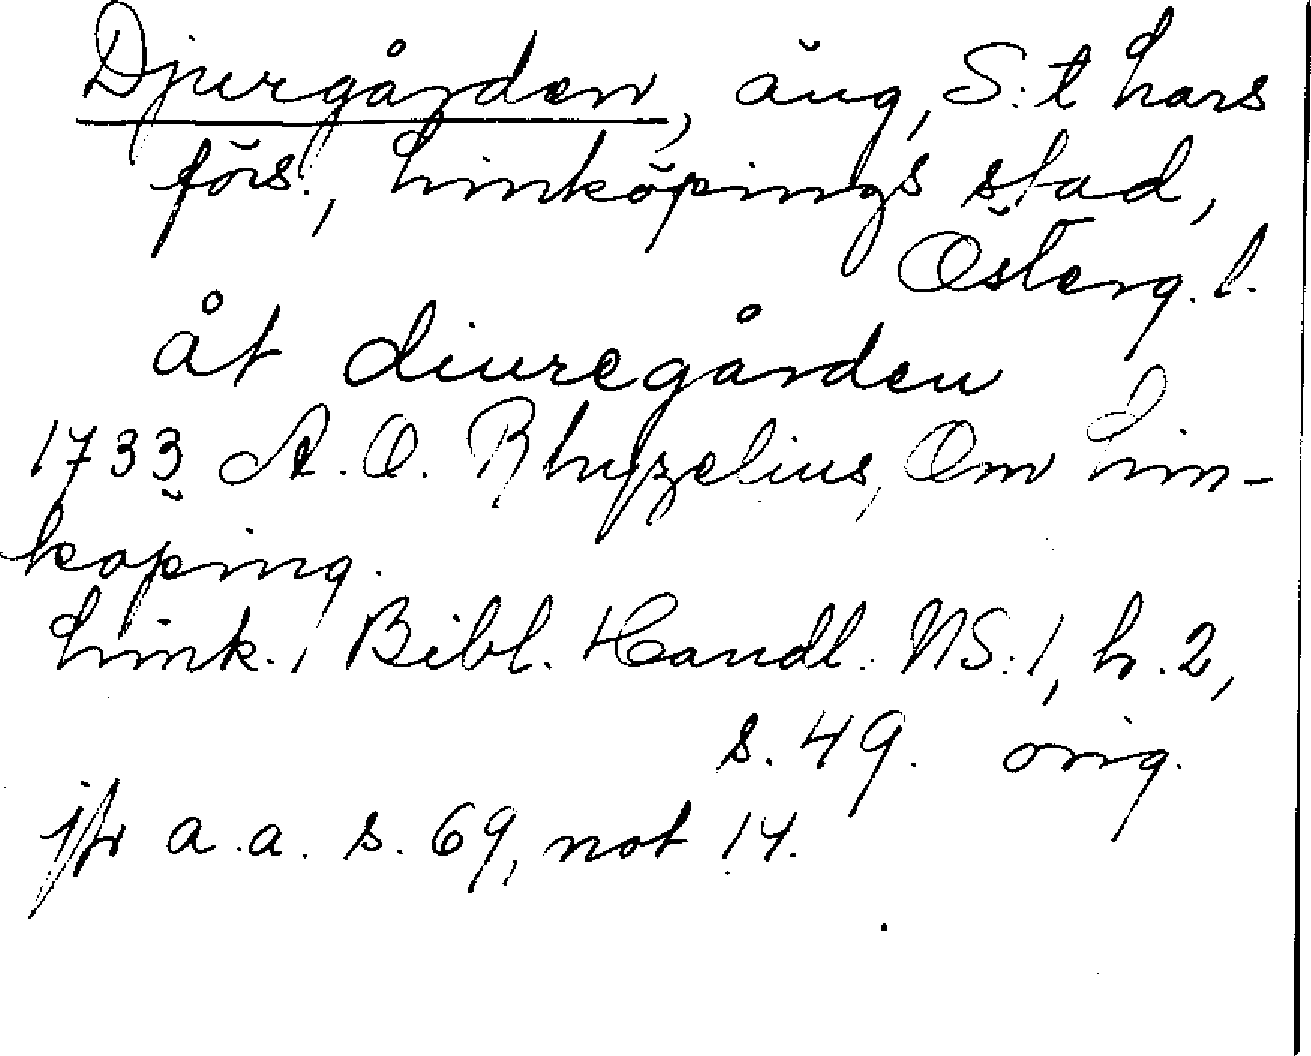 Djurgården, äng, S:t Lars
förs., Linköpings stad,
Österg. l.
åt diuregården
1733 A. O. Rhyzelius, Om Lin-
köping.
Link. Bibl. Handl. NS:1, h. 2,
s. 49. orig.
jfr a.a. s. 69, not 14.